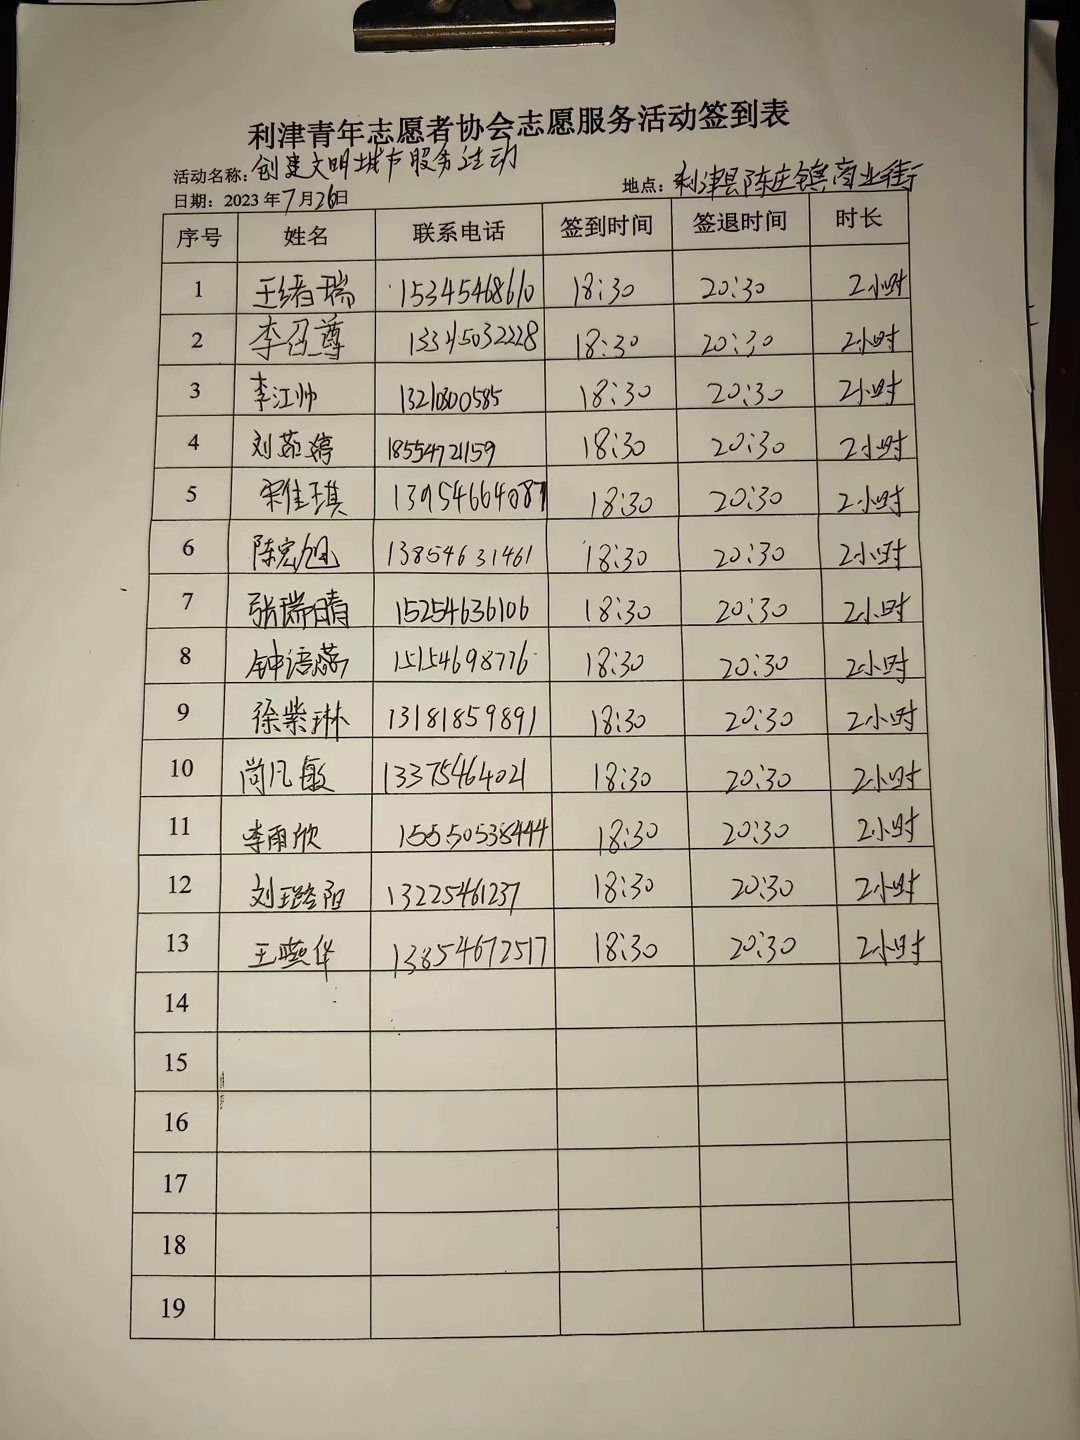 利津青年志愿者协会志愿服务活动签到表
活动名称：创建文明城市服务活动
日期：2023年7月26日 地点：利津县陈庄镇商业街
序号 姓名 联系电话 签到时间 签退时间 时长
1 王绪瑞 15345468610 18:30 20:30 2小时
2 李召尊 13345032228 18:30 20:30 2小时
3 李江帅 13210300585 18:30 20:30 2小时
4 刘茹婷 18554721159 18:30 20:30 2小时
5 宋佳琪 13954664087 18:30 20:30 2小时
6 陈宏旭 13854631461 18:30 20:30 2小时
7 张瑞晴 15254636106 18:30 20:30 2小时
8 钟语燕 15154698776 18:30 20:30 2小时
9 徐紫琳 13181859891 18:30 20:30 2小时
10 尚凡敏 13375464021 18:30 20:30 2小时
11 李雨欣 15550538444 18:30 20:30 2小时
12 刘璐阳 13225461237 18:30 20:30 2小时
13 王燕华 13854672517 18:30 20:30 2小时
14
15
16
17
18
19